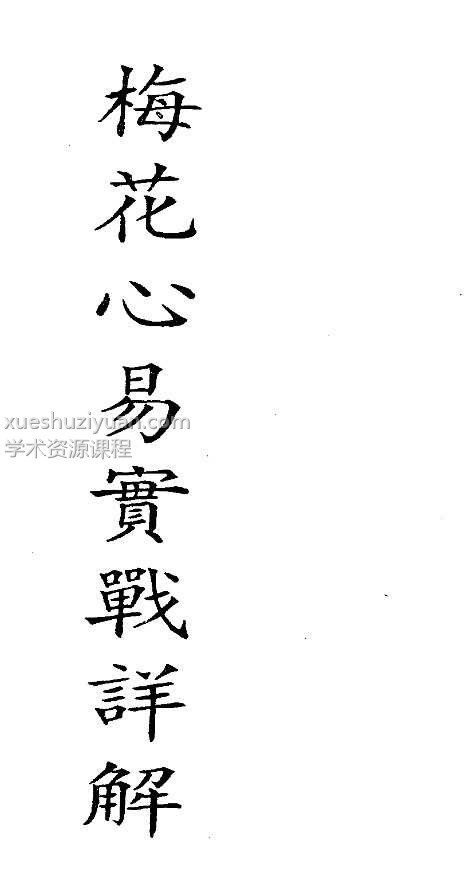 梅花心易實戰詳解
xueshuziyuan.com
学术资源课程